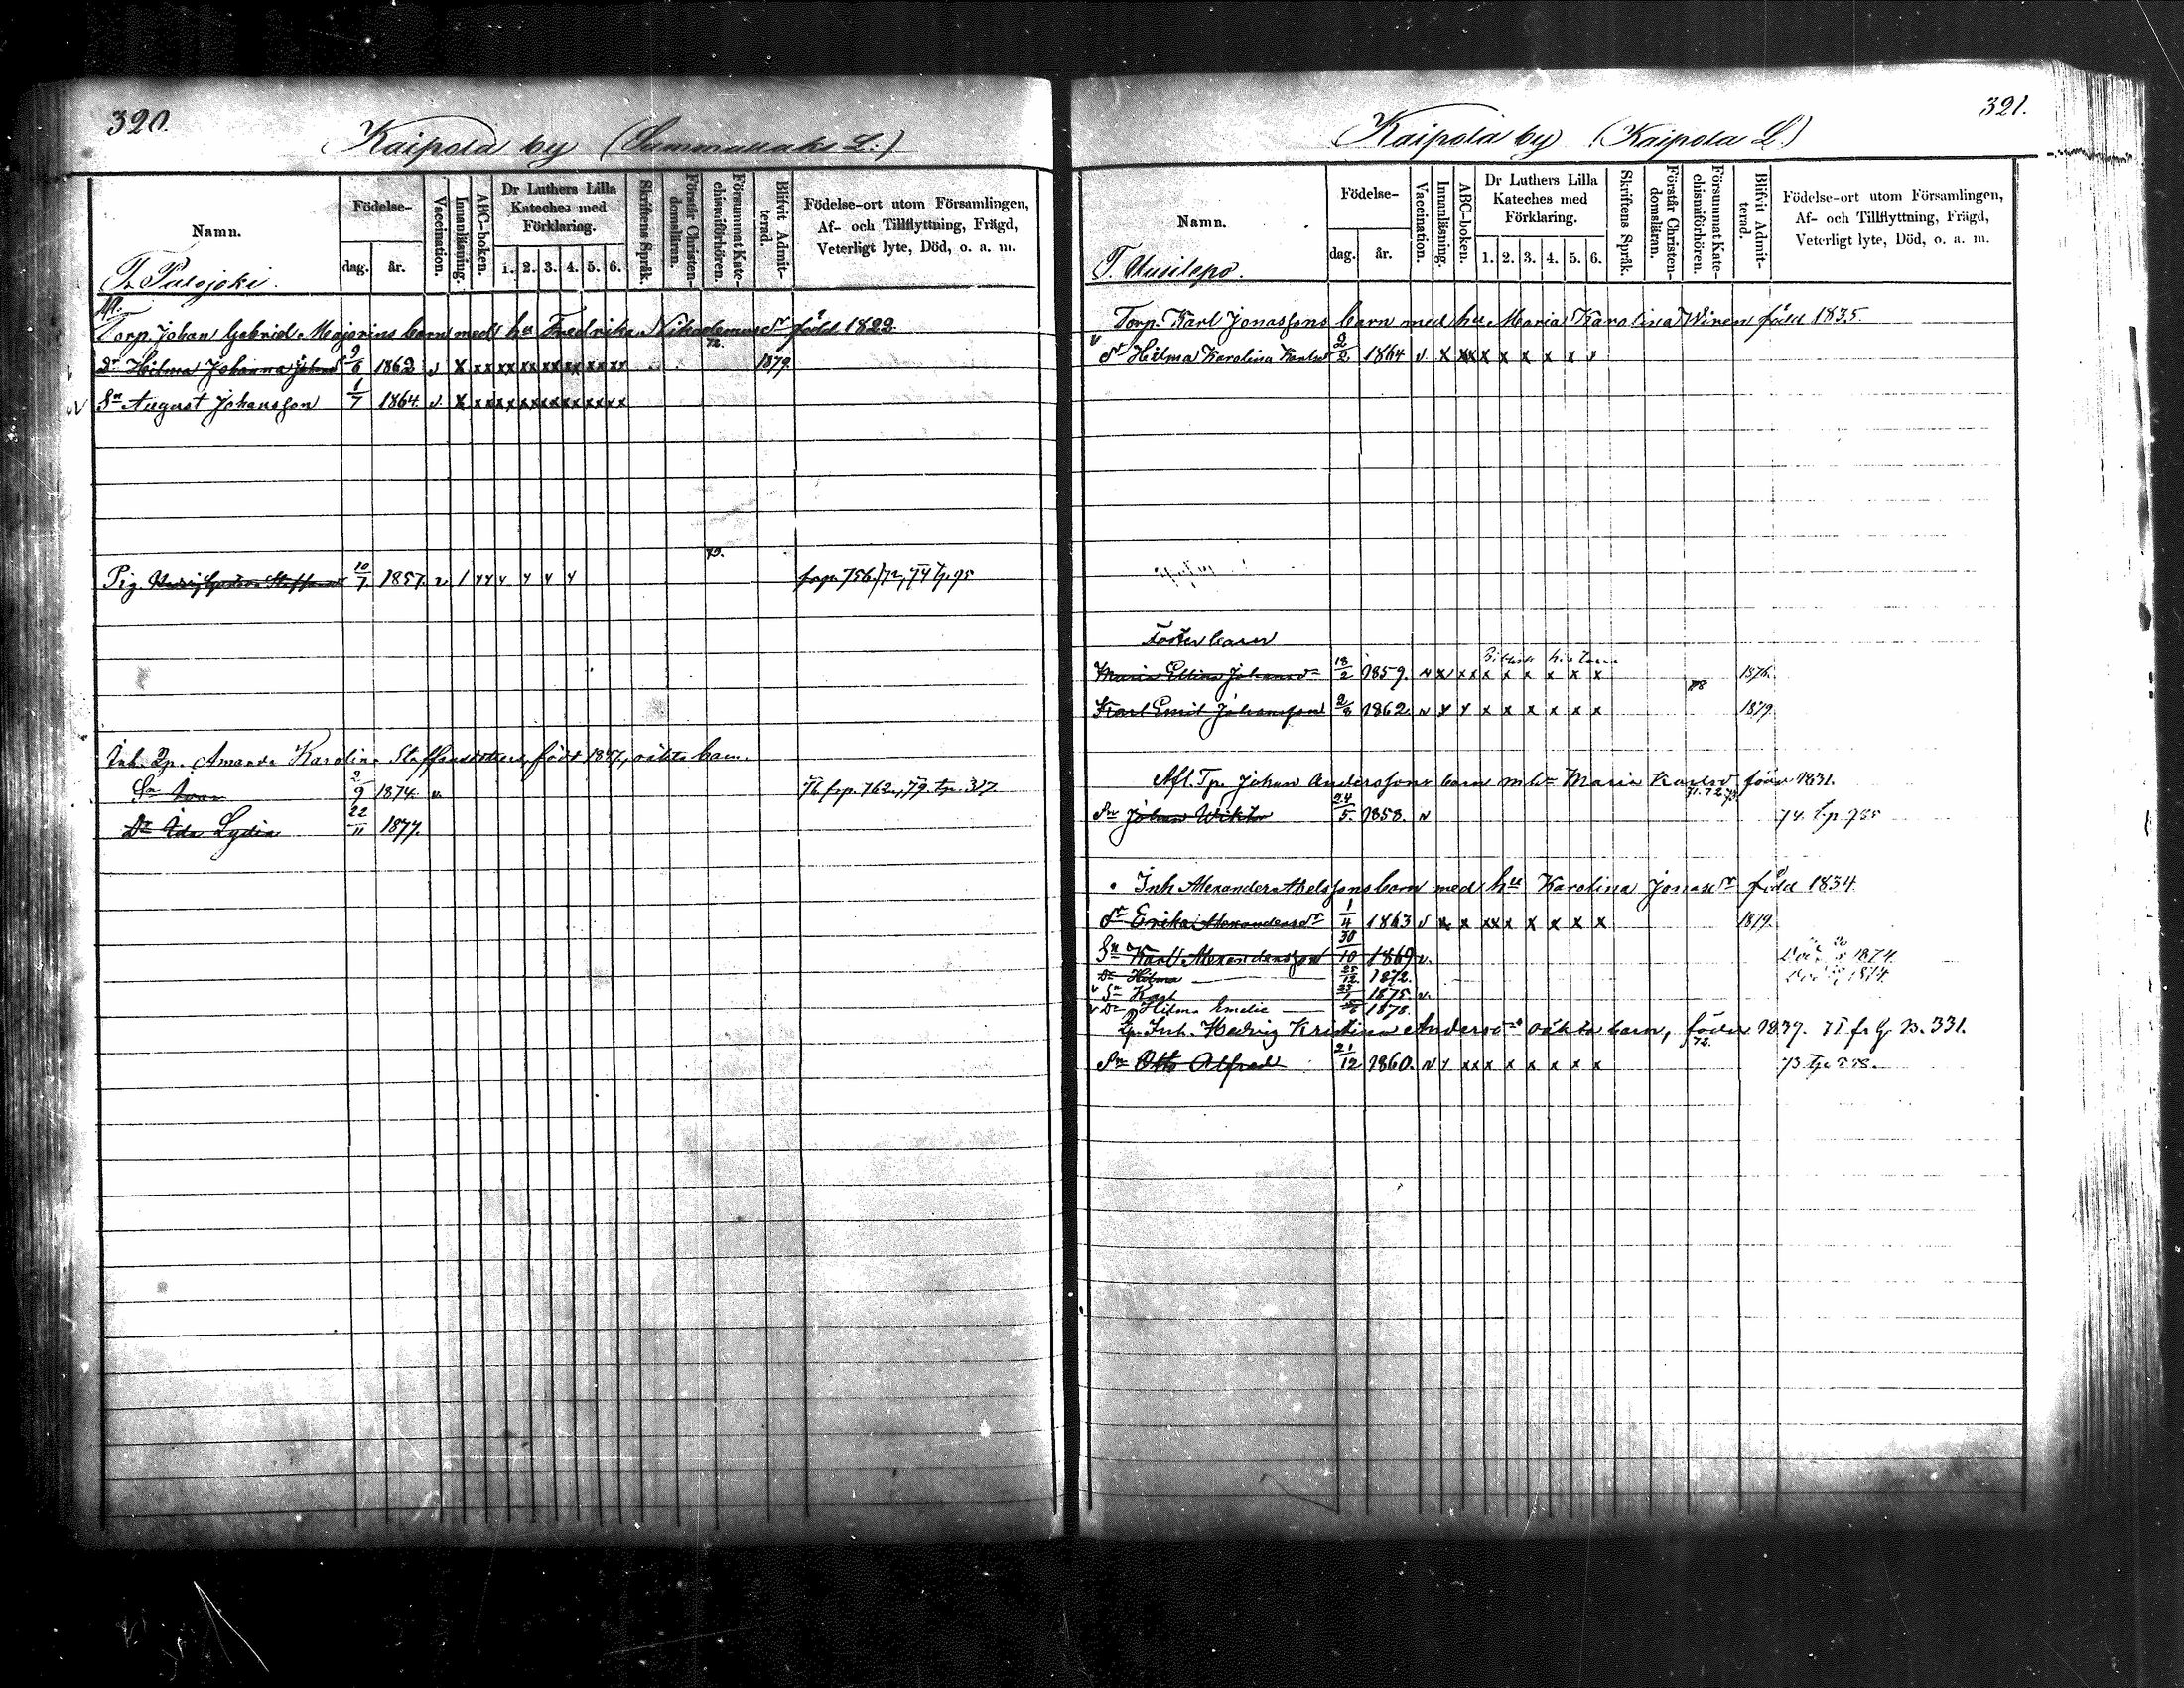 320.
Kaipola by (Sammunaho L:)
Namn.
Födelse-
dag.
år.
Vaccination.
Innanläsning.
ABC-boken.
Dr Luthers Lilla Kateches med Förklaring.
1. 2. 3. 4. 5. 6.
Skriftens Språk.
Förstår Christendomsläran.
Försummat Katechismiförhören.
Blifvit Admitterad.
Födelse-ort utom Församlingen, Af- och Tillflyttning, Frägd, Veterligt lyte, Död, o. a. m.
T. Palojoki.
Torp. Johan Gabriel Majorins barn med hu Fredrika Nikodemusdr född 1822
72.
Dr Hilma Johanna Johansd 9/6 1862 v x xx xx xx xx xx xx xx 1879.
Sn August Johansson 1/7 1864. v. x xx xx xx xx xx xx xx
73.
Pig. Staffansd 10/7. 1857. v 1 xx x x x x frp. 756/72, 74 tp. 95
Inh. Qp. Amanda Karolina Staffansdotters, född 1847, oäkta barn.
Sn Ivar 2/9 1874. v. 76 frp. 762., 79. tp. 317
Dr Ida Lydia 22/11 1877.
321.
Kaipola by (Kaipola L.)
Namn.
Födelse-
dag.
år.
Vaccination.
Innanläsning.
ABC-boken.
Dr Luthers Lilla Kateches med Förklaring.
1. 2. 3. 4. 5. 6.
Skriftens Språk.
Förstår Christendomsläran.
Försummat Katechismiförhören.
Blifvit Admitterad.
Födelse-ort utom Församlingen, Af- och Tillflyttning, Frägd, Veterligt lyte, Död, o. a. m.
T. Uusilepo.
Torp. Karl Jonassons barn med hu Maria Karolina Wiren född 1835.
v Dr Hilma Karolina Karlsd 2/2 1864 v x xx x x x x x x
Fosterbarn
Maria Ellina Johansd 18/2 1859. v x xx x x x x x x 1876.
78
Karl Emil Johansson 2/8 1862. v x x x x x x x x 1879
Afl. Tp. Johan Anderssons barn m hu Maria Karlsd född 1831.
71. 72. 73.
Sn Johan Wiktor 24/5. 1858. v 74. tp. 785
Inh Alexander Abelssons barn med hu Karolina Jonasdr född 1834.
Dr Erika Alexandersdr 1/4 1863 v x x xx x x x x x 1879.
Sn Karl Alexandersson 30/10 1869 v. Död 1874.
Dr Hilma — 25/12. 1872. Död 1874.
v Sn Karl 1875. v.
v Dr Hilma Emelie — 1878.
Qp. Inh. Hedvig Kristina Andersd oäkta barn, född 1837. 71 fr G. B. 331.
72.
Sn Otto Alfred 21/12 1860. v x xx x x x x x x 73 tp.